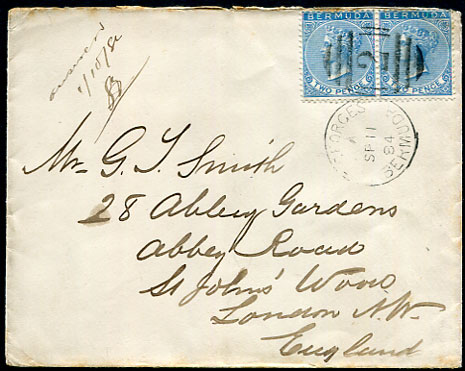 BERMUDA BERMUDA
TWO PENCE TWO PENCE
2
ST GEORGES FORM BERMUDA
A
SP 11
84
answered
1/10/84
Mr G. T. Smith
28 Abbey Gardens
Abbey Road
St Johns' Wood
London N.W.
England